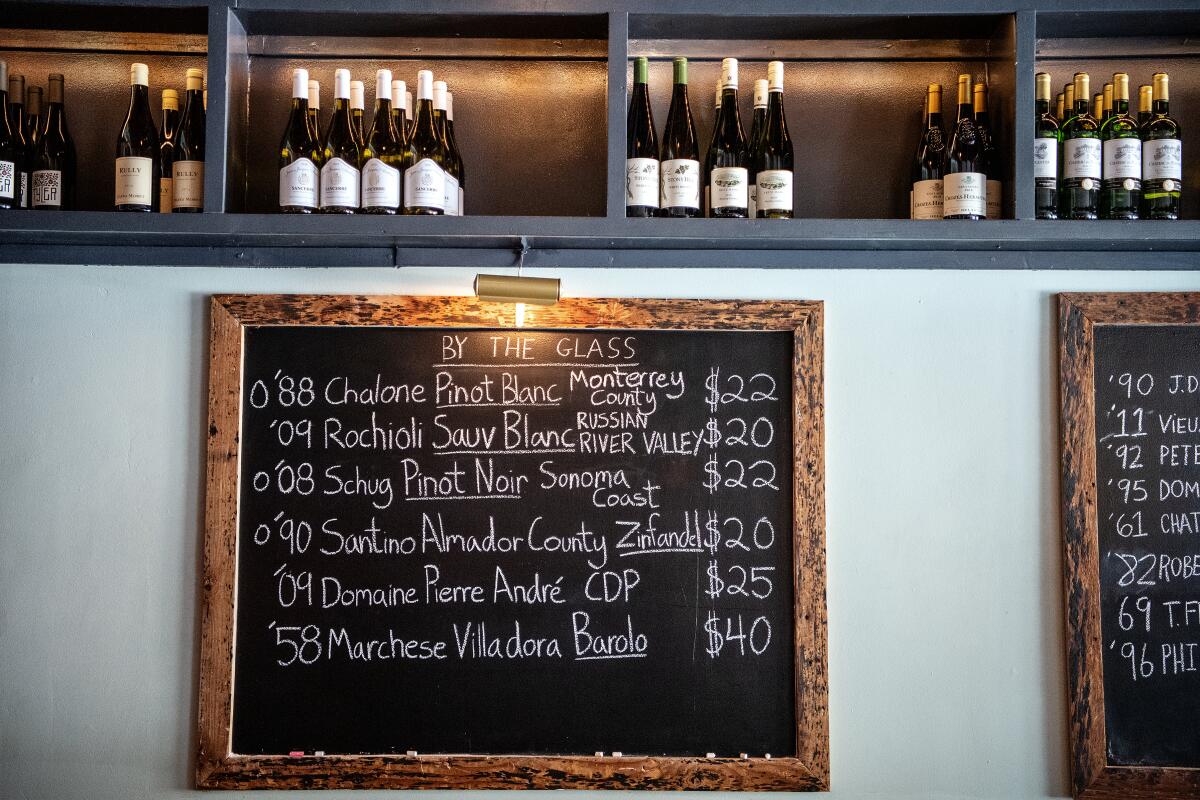 RULLY
RULLY
SANCERRE
SANCERRE
SANCERRE
SANCERRE
BY THE GLASS
O '88 Chalone Pinot Blanc Monterrey County $22
'09 Rochioli Sauv Blanc RUSSIAN RIVER VALLEY $20
o '08 Schug Pinot Noir Sonoma Coast $22
o '90 Santino Almador County Zinfandel $20
'09 Domaine Pierre André CDP $25
'58 Marchese Villadora Barolo $40
'90 J.D
'11 VIEU
'92 PETE
'95 DOM
'61 CHAT
'82 ROBE
69 T.F
'96 PHI